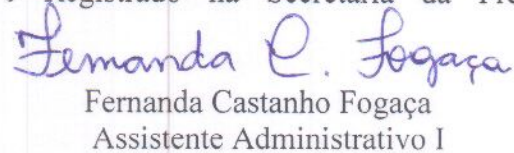 Registrado na Secretaria da
Fernanda C. Fogaça
Fernanda Castanho Fogaça
Assistente Administrativo I